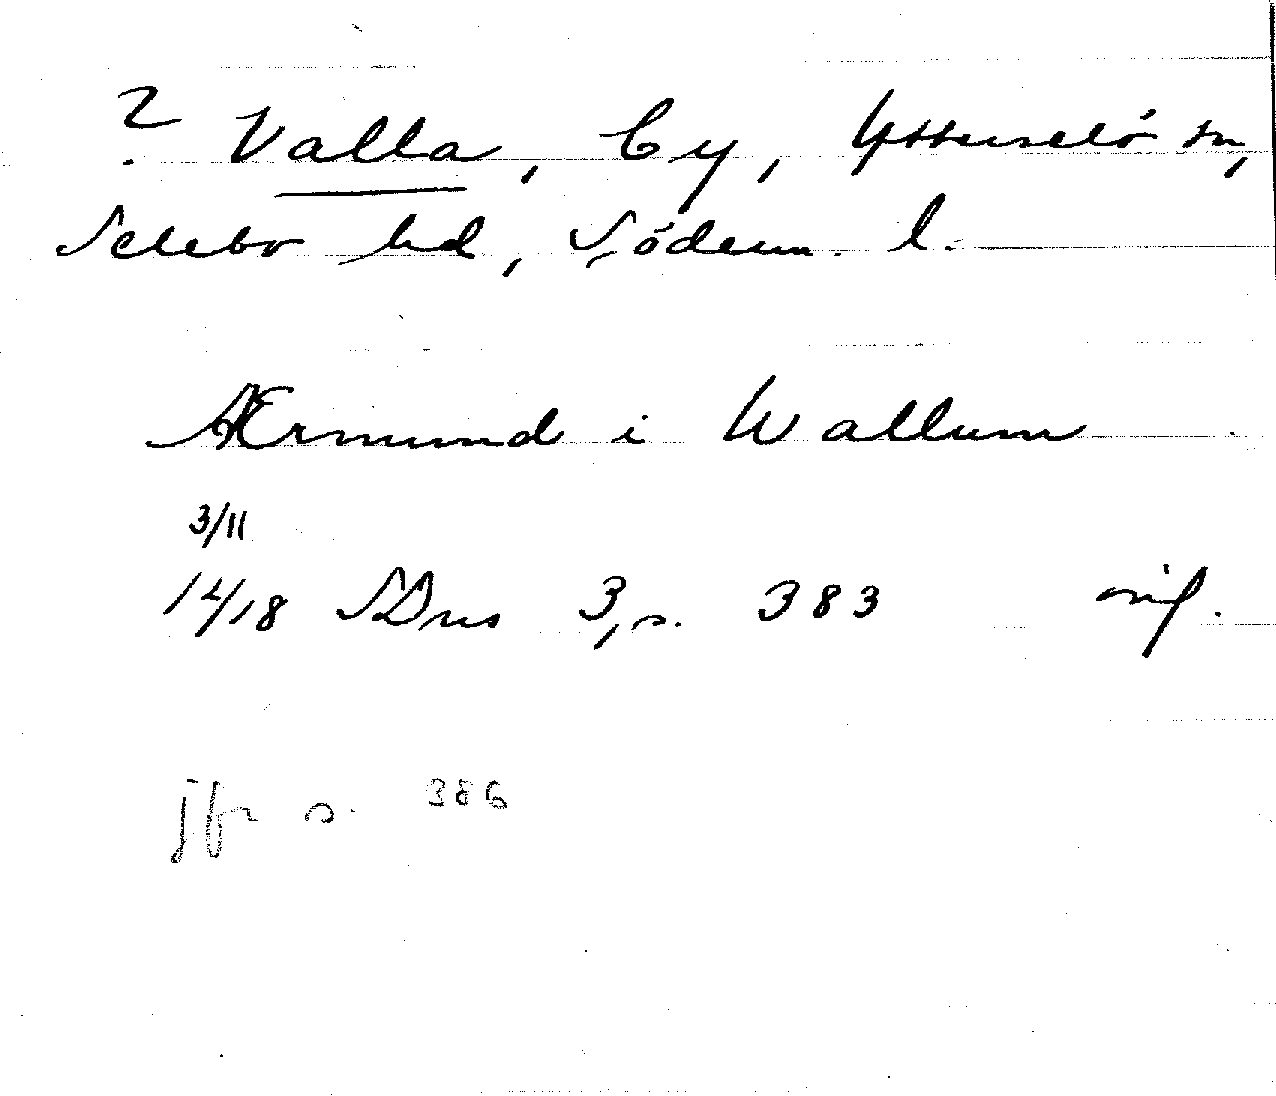 ? Valla, by, Ytterselö sn,
Selebo hd, Söderm. l.
Ærmund i Wallum
3/11
14/18 SDns 3, s. 383 orig.
jfr s. 386